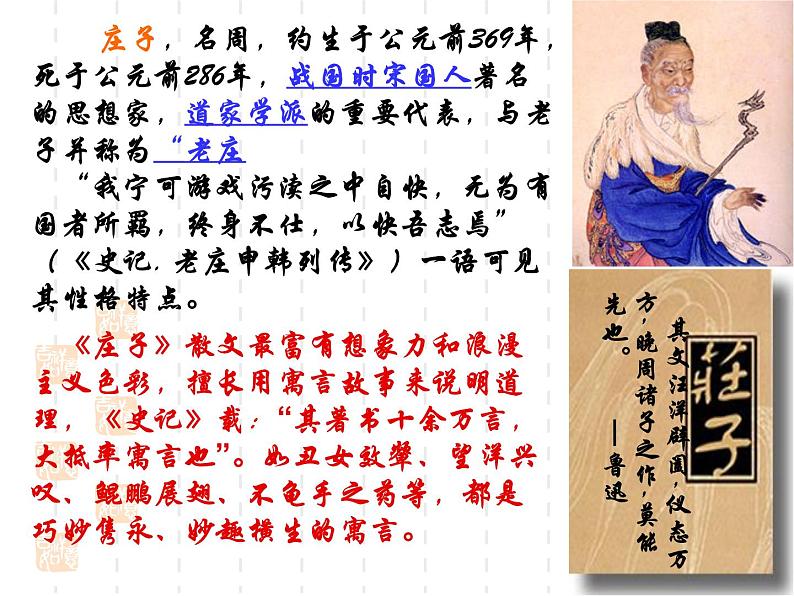 庄子，名周，约生于公元前369年，
死于公元前286年，战国时宋国人著名
的思想家，道家学派的重要代表，与老
子并称为“老庄
“我宁可游戏污渎之中自快，无为有
国者所羁，终身不仕，以快吾志焉”
（《史记．老庄申韩列传》）一语可见
其性格特点。
《庄子》散文最富有想象力和浪漫
主义色彩，擅长用寓言故事来说明道
理，《史记》载：“其著书十余万言，
大抵率寓言也”。如丑女效颦、望洋兴
叹、鲲鹏展翅、不龟手之药等，都是
巧妙隽永、妙趣横生的寓言。
其文汪洋辟阖，仪态万
方，晚周诸子之作，莫能
先也。
—鲁迅
莊子